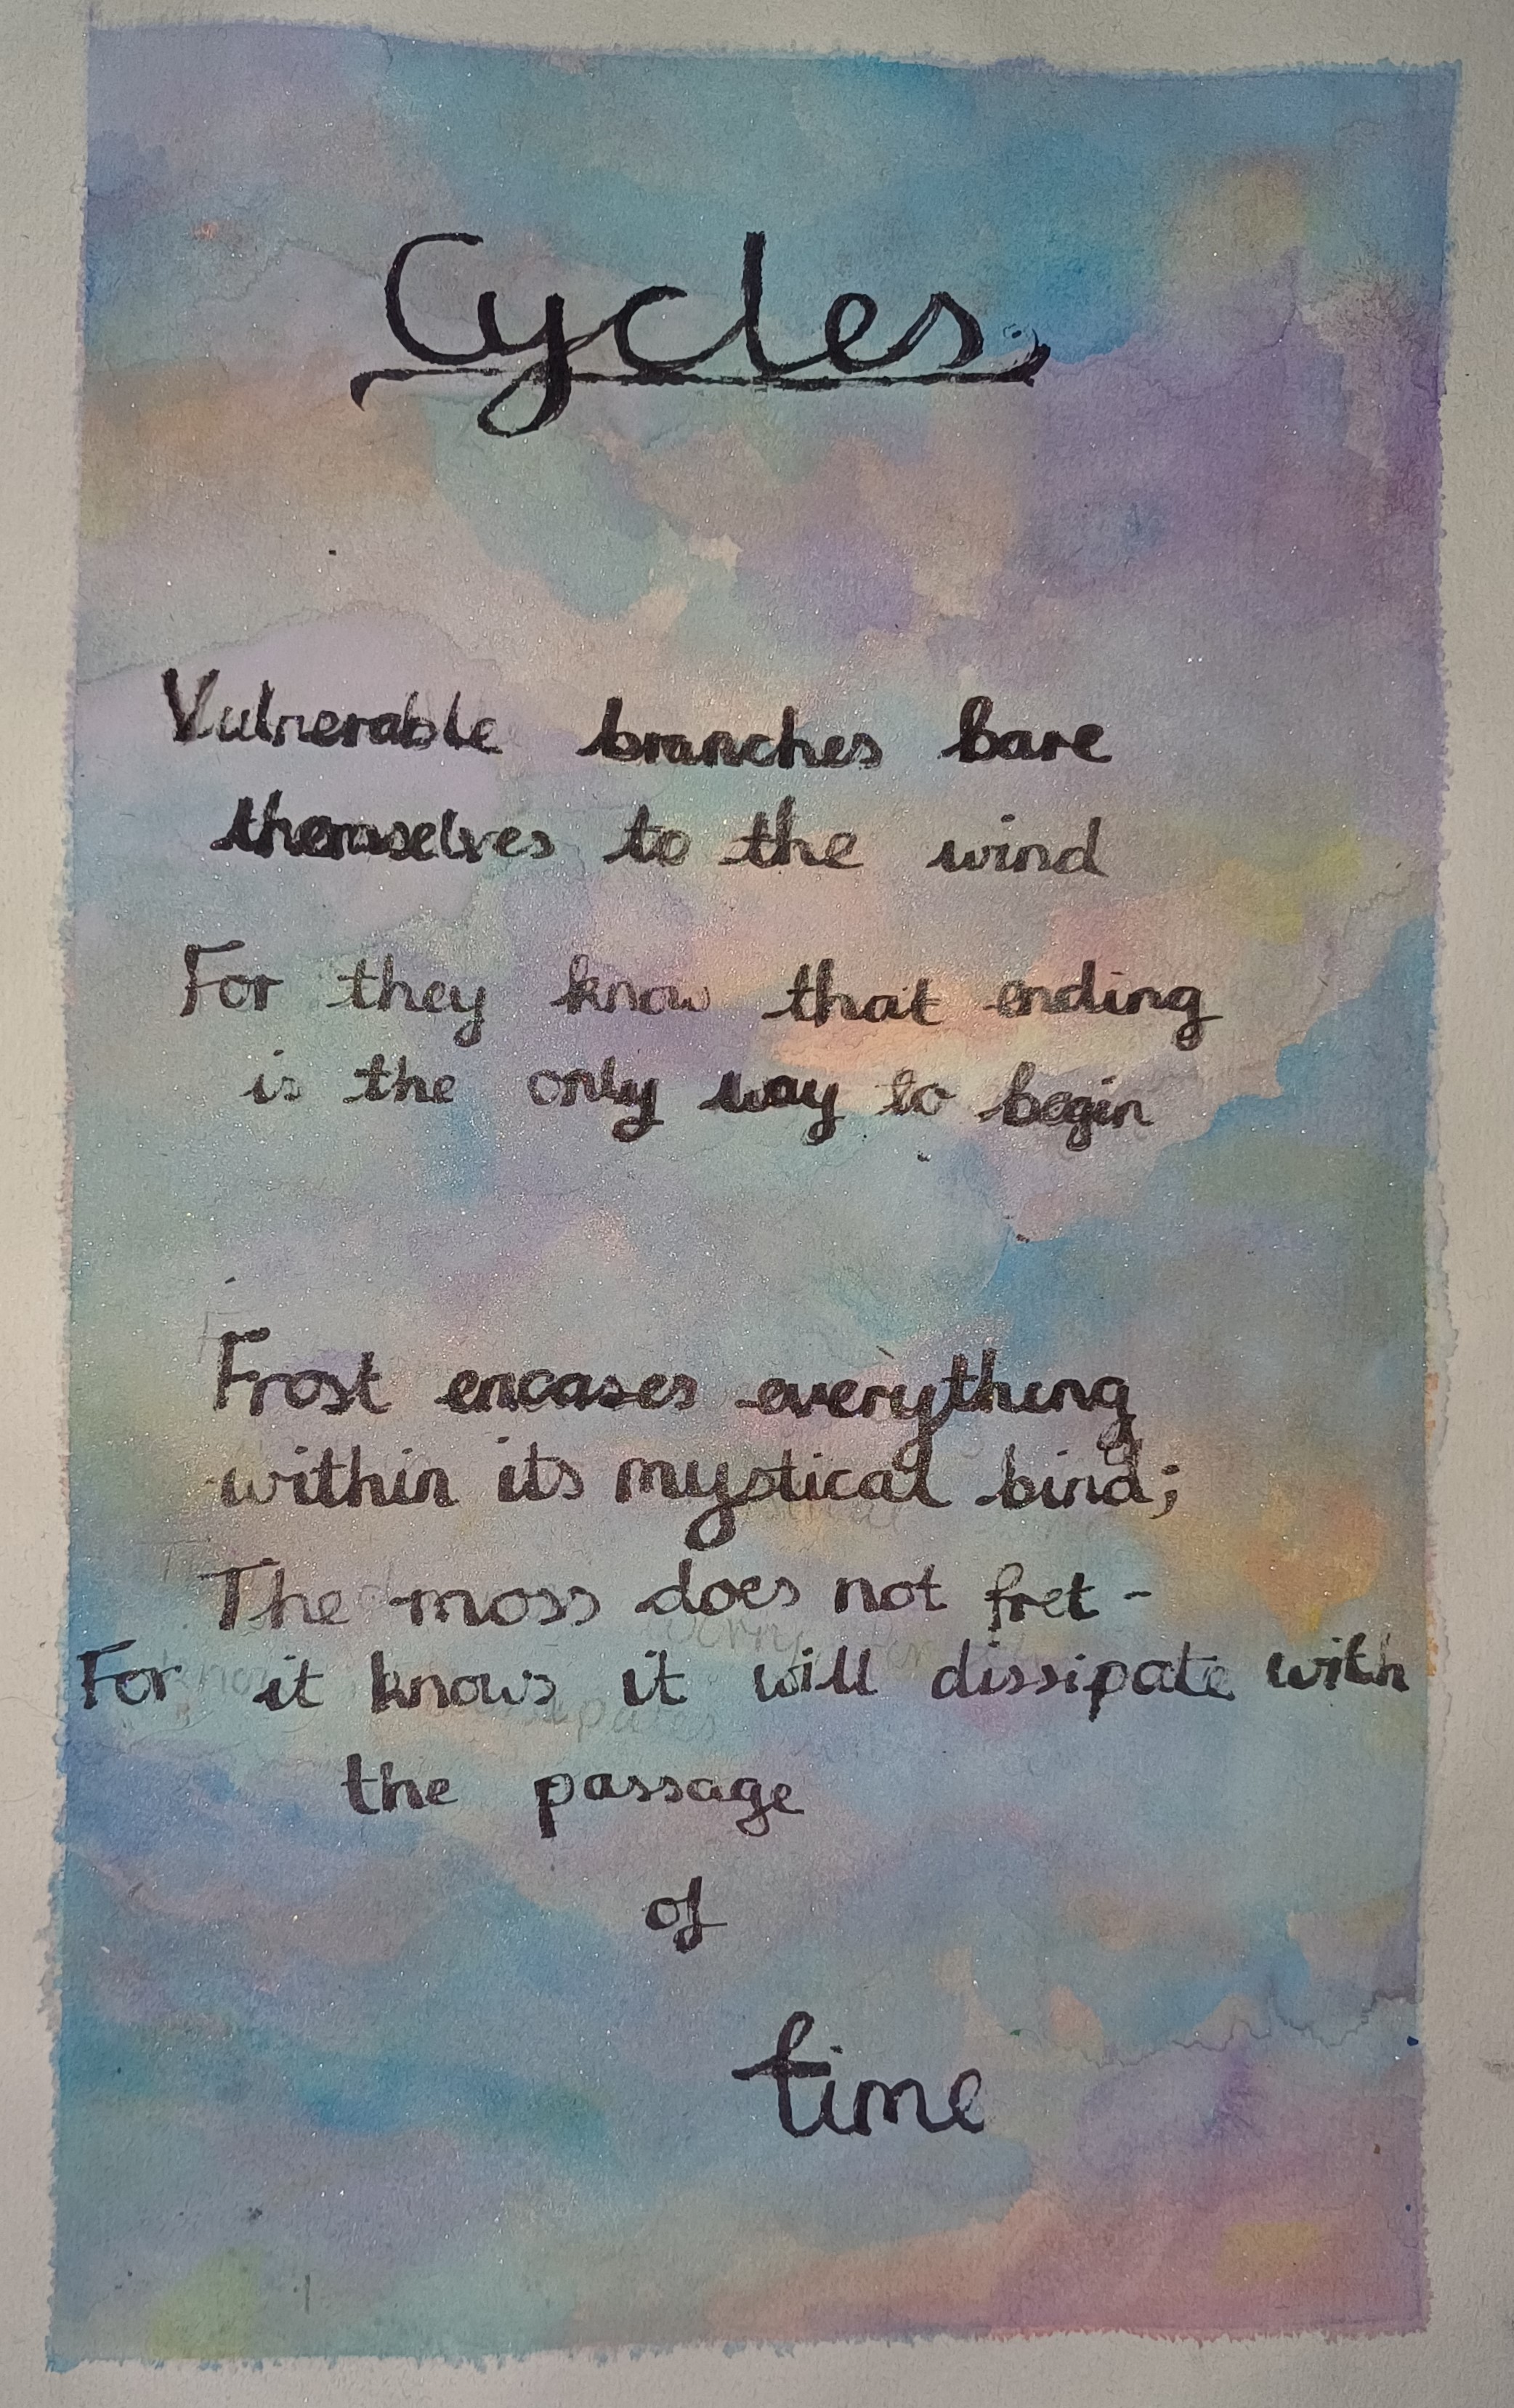 Cycles
Vulnerable branches bare
themselves to the wind
For they know that ending
is the only way to begin
Frost encases everything
within its mystical bind;
The moss does not fret -
For it knows it will dissipate with
the passage
of
time